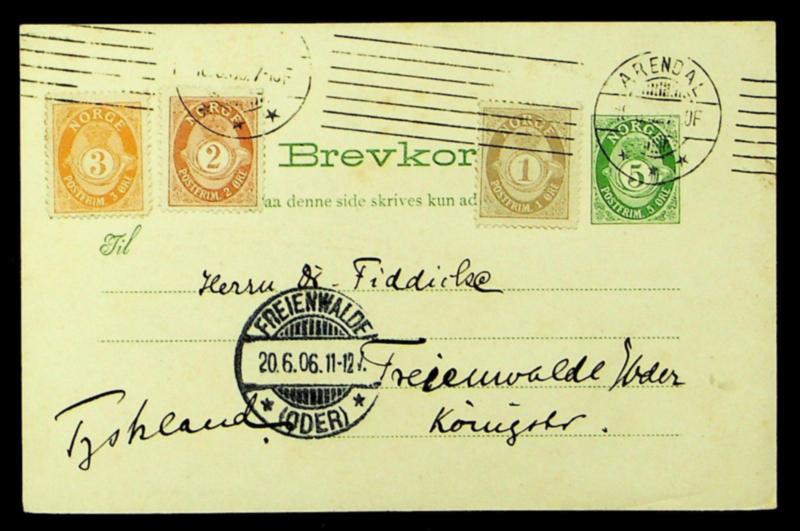 ARENDAL
NORGE
3
POSTFRIM. 3 ØRE
NORGE
2
POSTFRIM. 2 ØRE
NORGE
1
POSTFRIM. 1 ØRE
NORGE
5
POSTFRIM. 5 ØRE
Brevkor
aa denne side skrives kun ad
Til
Herrn Dr. Fiddicke
FREIENWALDE
20.6.06.11-12 V.
(ODER)
Freienwalde /Oder
Tyskland.
Königstr.